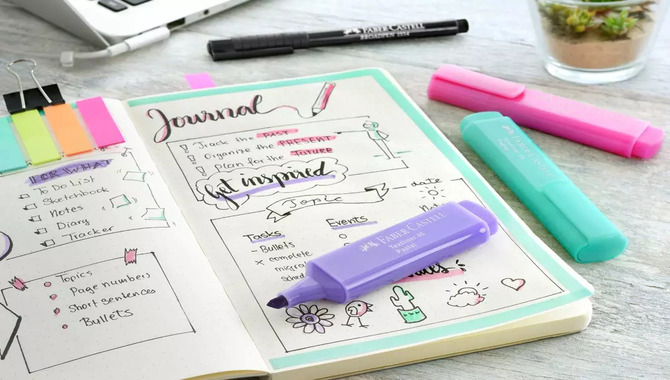 FABER-CASTELL
BROADPEN 1554
FOR WHAT
To Do List
Sketchbook
Notes
Diary
Tracker
Topics
Page numbers
Short sentences
Bullets
Journal
Track the PAST
Organize the PRESENT
Plan for the FUTURE
Get inspired
Topic
date
Tasks
Events
- Bullets
x complete
FABER-CASTELL
Textliner 46
Pastel